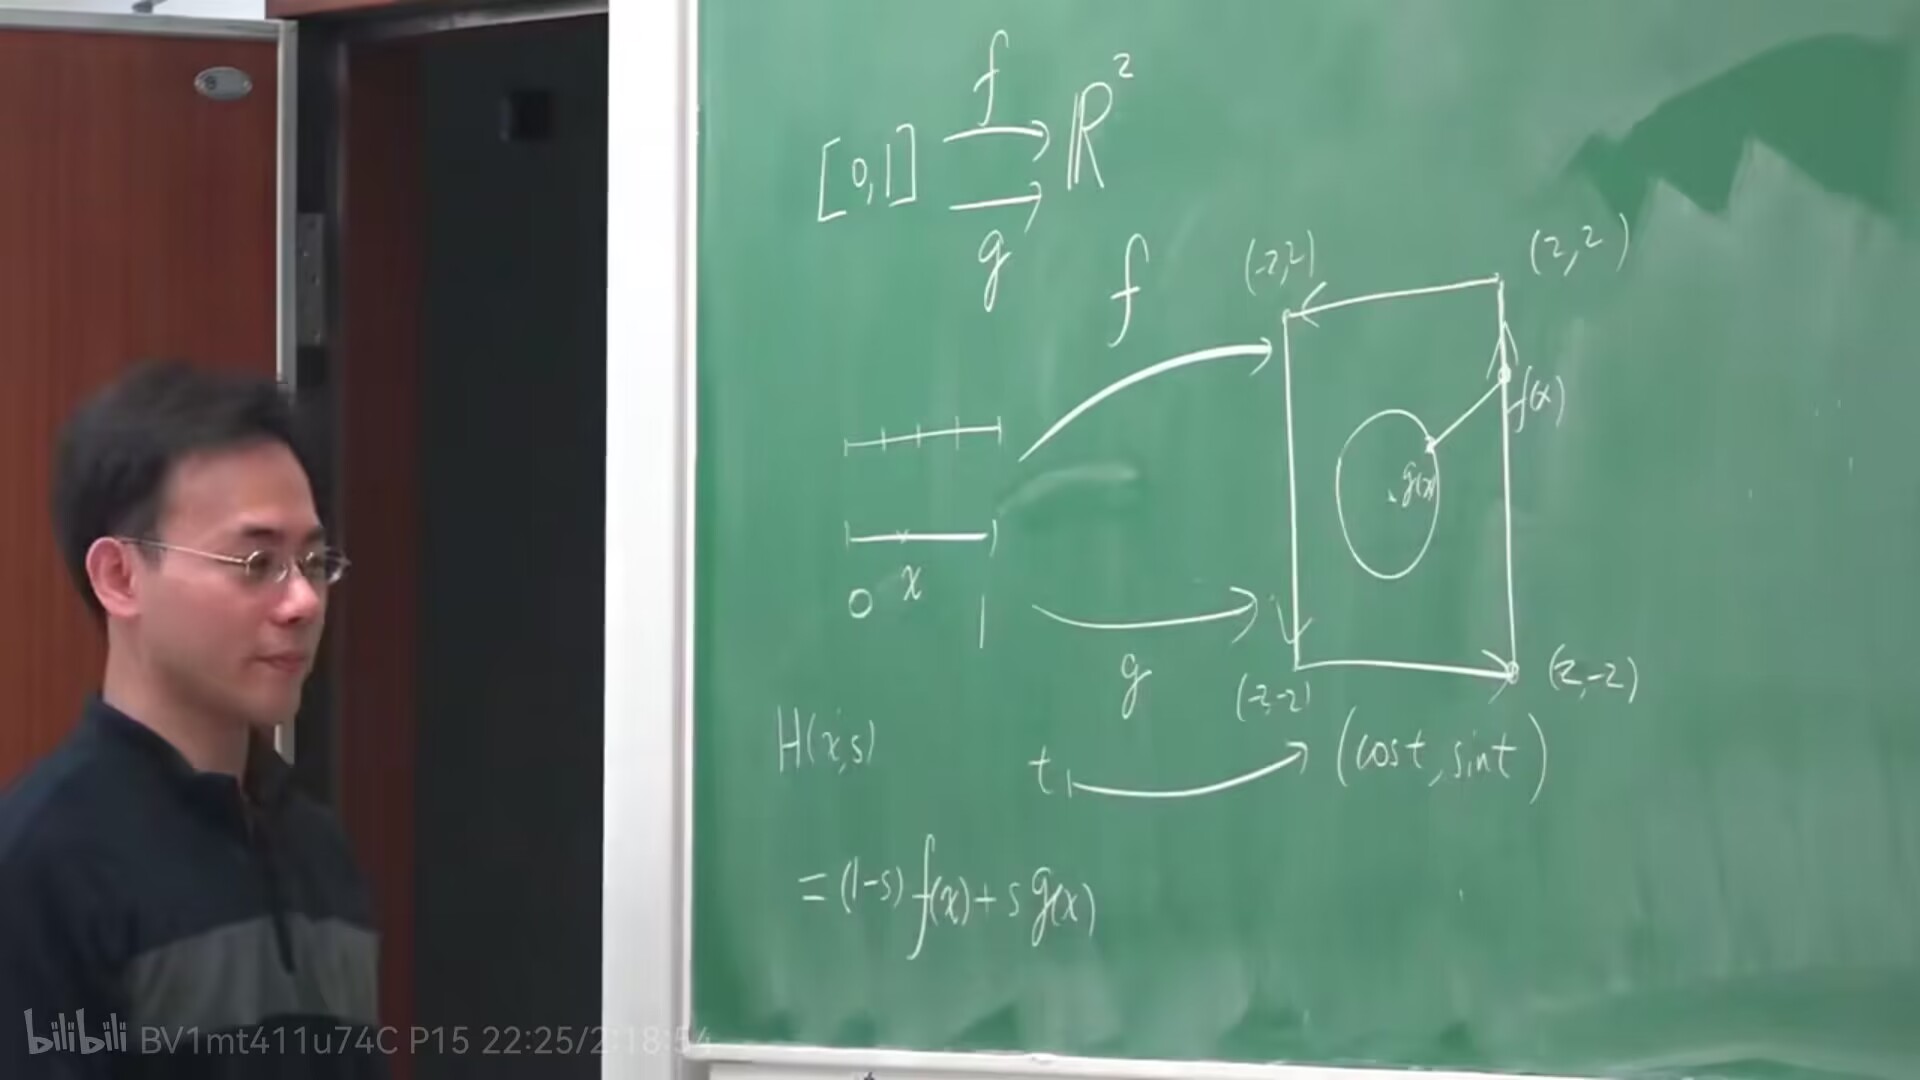 f
[0,1] ⟶ ℝ²
g
f
(-2,2)
(2,2)
f(x)
g(x)
0 x 1
g
(-2,-2)
(2,-2)
H(x,s)
t ⟼ (cost, sint)
= (1-s) f(x) + s g(x)
bilibili BV1mt411u74C P15 22:25/2:18:54